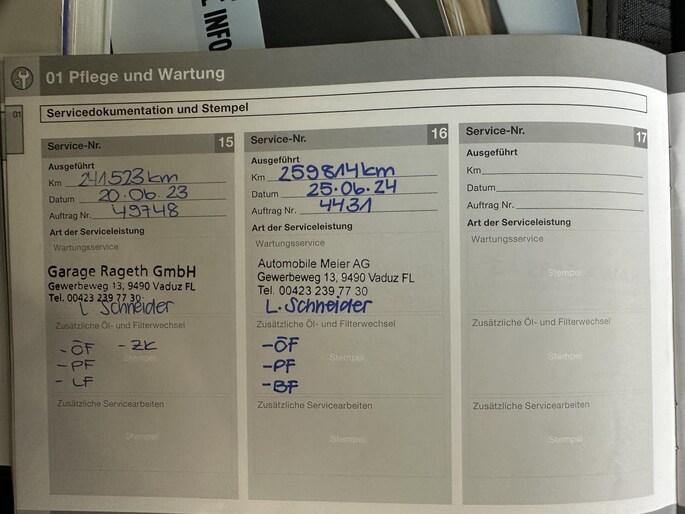 E INFO
01 Pflege und Wartung
01
Servicedokumentation und Stempel
Service-Nr. 15
Ausgeführt
Km 241523km
Datum 20.06.23
Auftrag Nr. 49748
Art der Serviceleistung
Wartungsservice
Garage Rageth GmbH
Gewerbeweg 13, 9490 Vaduz FL
Tel. 00423 239 77 30
L Schneider
Zusätzliche Öl- und Filterwechsel
-ÖF -ZK
Stempel
-PF
-LF
Zusätzliche Servicearbeiten
Stempel
Service-Nr. 16
Ausgeführt
Km 259814km
Datum 25.06.24
Auftrag Nr. 4431
Art der Serviceleistung
Wartungsservice
Automobile Meier AG
Gewerbeweg 13, 9490 Vaduz FL
Tel. 00423 239 77 30
L. Schneider
Zusätzliche Öl- und Filterwechsel
-ÖF
Stempel
-PF
-BF
Zusätzliche Servicearbeiten
Stempel
Service-Nr. 17
Ausgeführt
Km
Datum
Auftrag Nr.
Art der Serviceleistung
Wartungsservice
Stempel
Zusätzliche Öl- und Filterwechsel
Stempel
Zusätzliche Servicearbeiten
Stempel